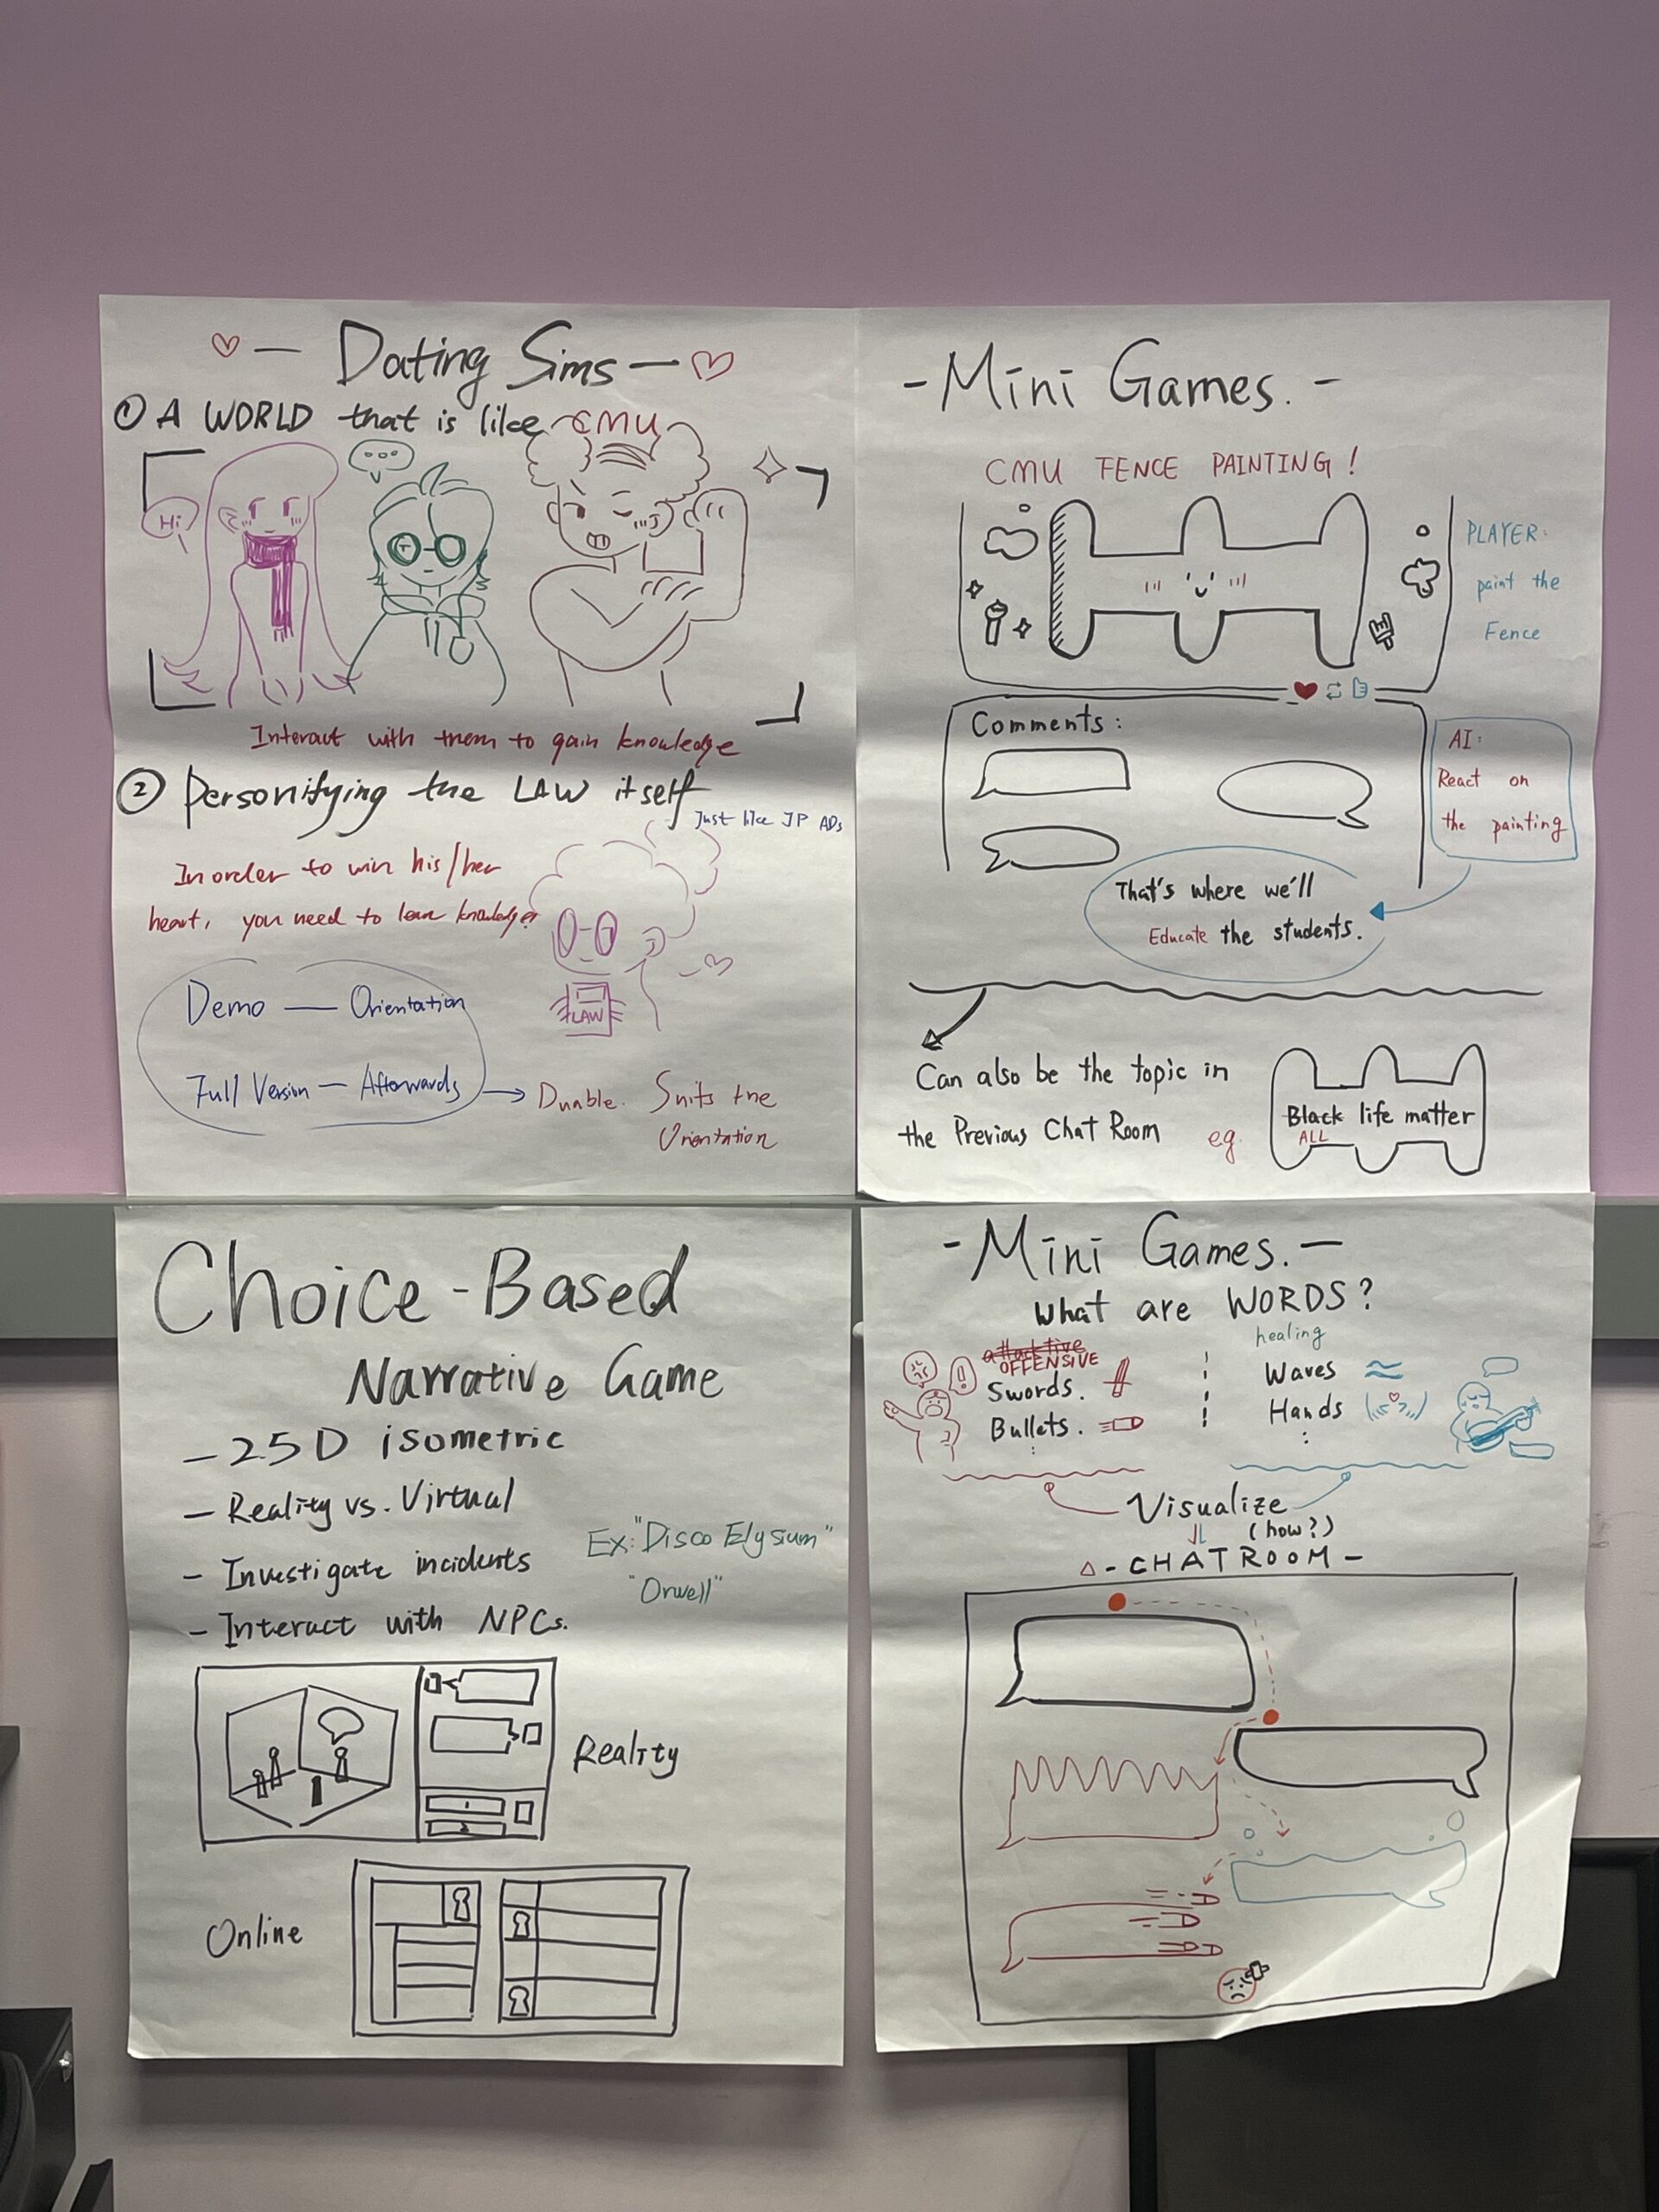 — Dating Sims —
① A WORLD that is like CMU
Hi
...
Interact with them to gain knowledge
② Personifying the LAW itself
Just like JP ADs
In order to win his/her
heart, you need to learn knowledge
LAW
Demo — Orientation
Full Version — Afterwards → Durable. Suits the
Orientation
- Mini Games. -
CMU FENCE PAINTING!
PLAYER:
paint the
Fence
Comments:
AI:
React on
the painting
That's where we'll
Educate the students.
Can also be the topic in
the Previous Chat Room eg.
Black life matter
ALL
Choice-Based
Narrative Game
- 2.5D isometric
- Reality vs. Virtual
- Investigate incidents
- Interact with NPCs.
Ex: "Disco Elysium"
"Orwell"
Reality
Online
- Mini Games. -
What are WORDS?
attacktive
OFFENSIVE
Swords.
Bullets.
healing
Waves
Hands
Visualize
(how?)
- CHATROOM -